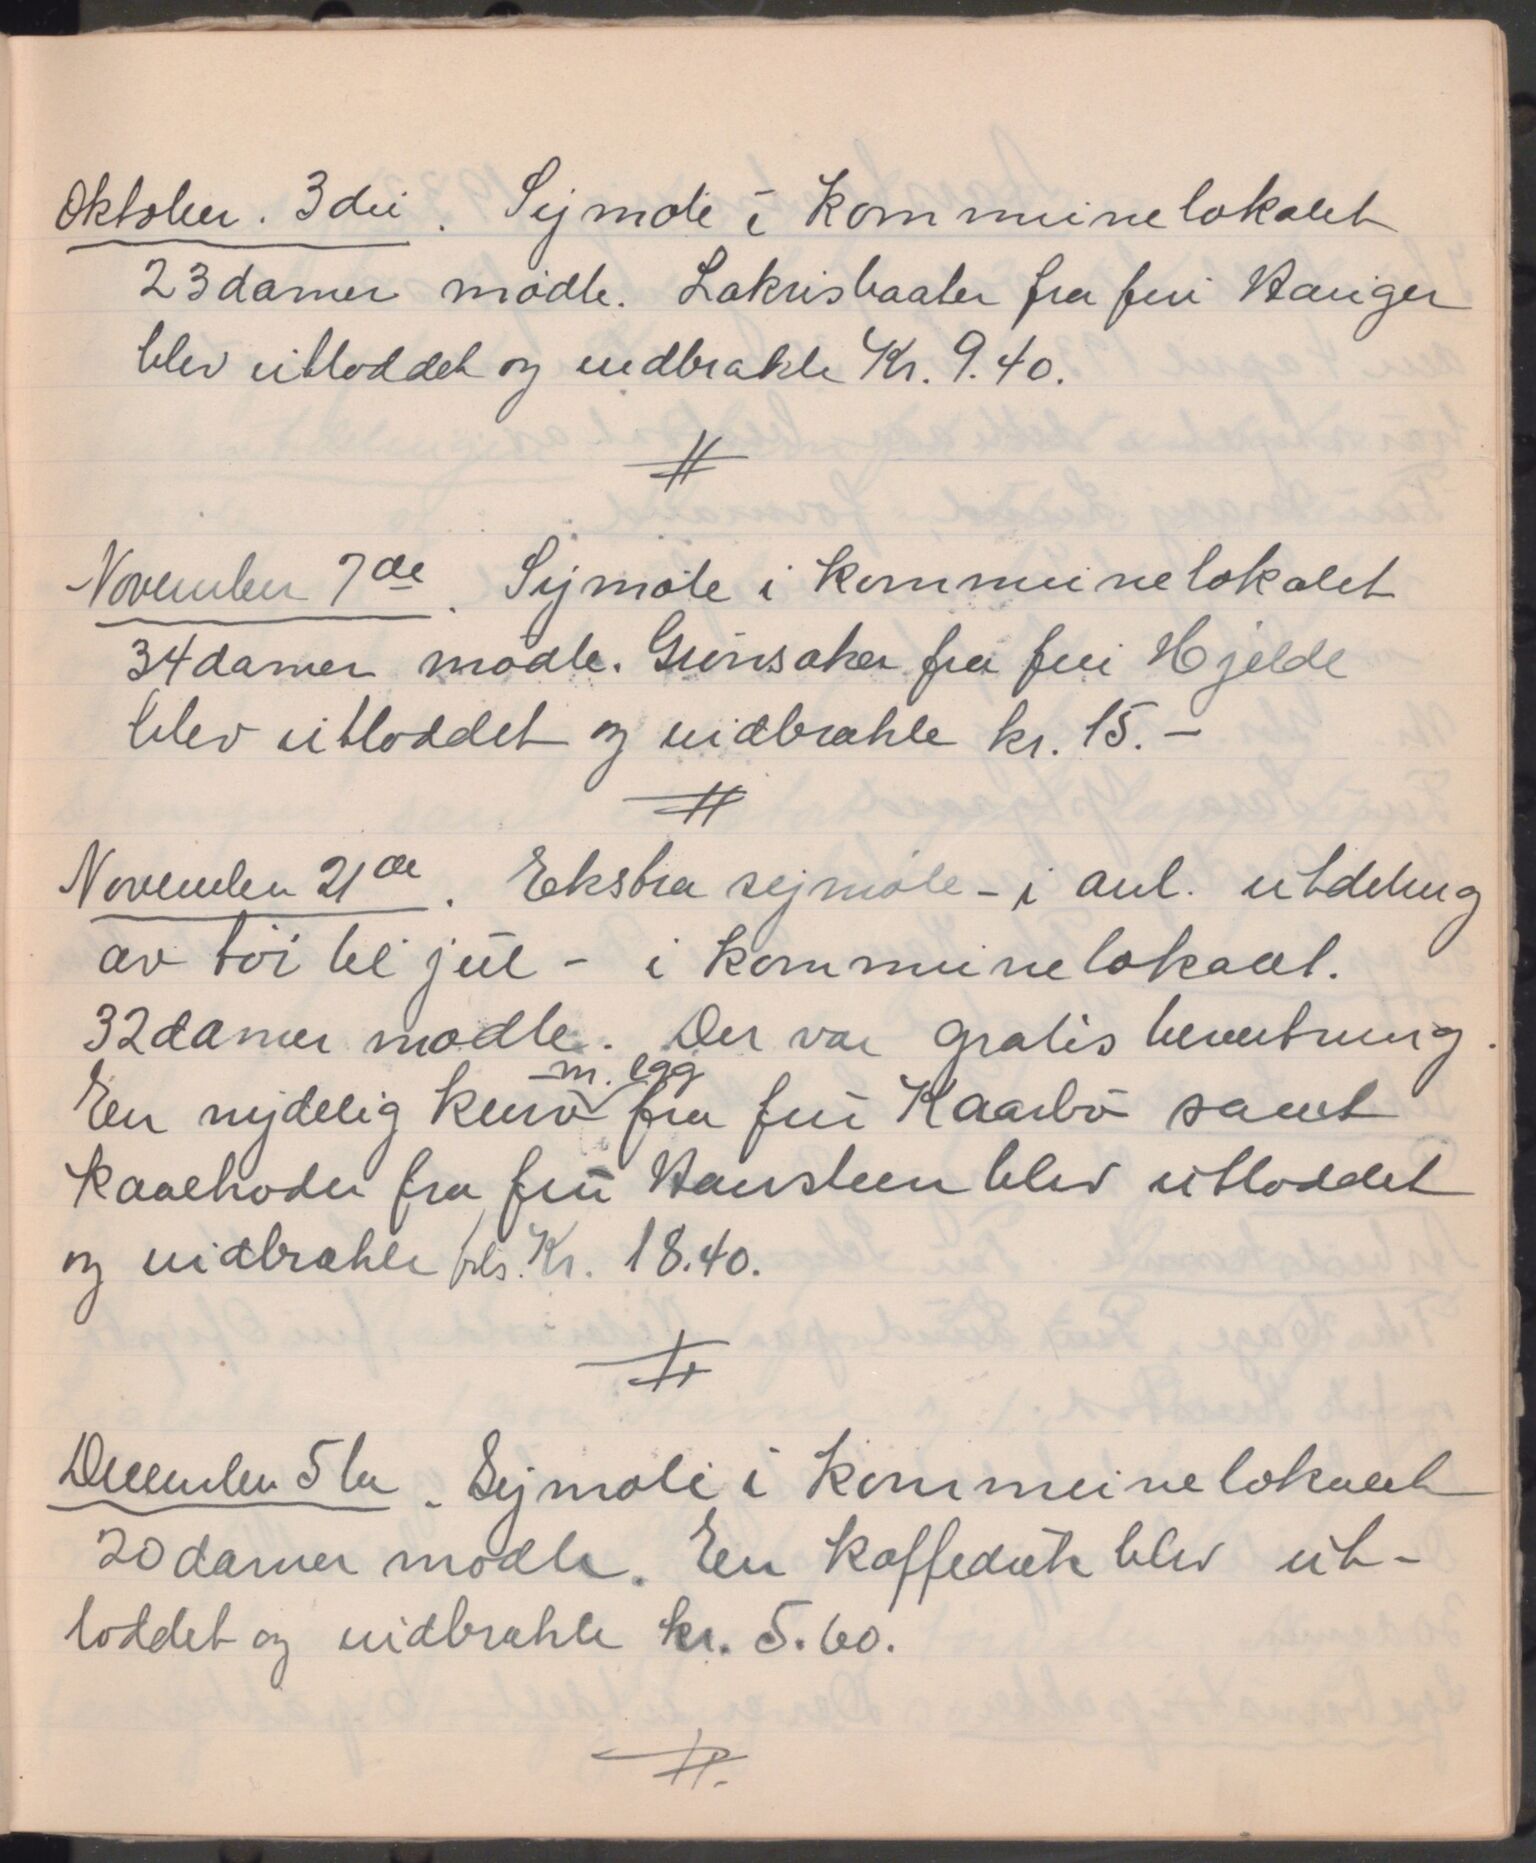 Oktober. 3die. Symøte i kommunelokalet
23 damer mødte. Lakrisbaater fra fru Hauger
blev utloddet og indbrakte Kr. 9.40.
#
November 7de. Symøte i kommunelokalet
34 damer mødte. Grønsaker fra fru Hjelde
blev utloddet og indbrakte kr. 15.-
#
November 21de. Ekstra symøte - i anl. utdeling
av tøi til jul - i kommunelokalet.
32 damer mødte. Der var gratis bevertning.
m. egg
En nydelig kurv fra fru Kaarbø samt
kaalhoder fra fru Hansteen blev utloddet
og indbrakte tils. Kr. 18.40.
#
December 5te. Symøte i kommunelokalet
20 damer mødte. En kaffeduk blev ut-
loddet og indbrakte kr. 5.60.
#.